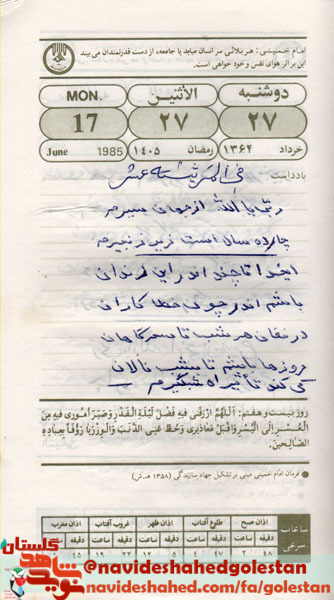 امام خمینی: هر بلائی سر انسان میاید یا جامعه، از دست قدرتمندان می بیند
این بر اثر هوای نفس و خود خواهی است.
دوشنبه
الأثنین
MON.
۲۷
۲۷
17
خرداد ۱۳۶۴
رمضان ۱۴۰۵
June 1985
یادداشت
فی
یا الله از جهان سیرم
چارده سال است زیر زنجیرم
ای خدا تا چند اندر این زندان
باشم اندر چون خطا کاران
در فغان هر شب تا سحرگاهان
روزها باشم تا بشب نالان
کی کند تأثیر آه شبگیرم
روز بیست و هفتم: اَللّهُمَّ ارْزُقْنی فیهِ فَضْلَ لَیْلَةِ الْقَدْرِ وَ صَیِّرْ اُموری فیهِ مِنَ
الْعُسْرِ اِلَی الْیُسْرِ وَ اقْبَلْ مَعاذیری وَ حُطَّ عَنِّی الذَّنْبَ وَ الْوِزْرَ یا رَؤُفاً بِعِبادِهِ
الصّالِحینَ.
● فرمان امام خمینی مبنی بر تشکیل جهاد سازندگی (۱۳۵۸ هـ.ش)
ساعات شرعی
اذان صبح
طلوع آفتاب
اذان ظهر
غروب آفتاب
اذان مغرب
ساعت دقیقه ساعت دقیقه ساعت دقیقه ساعت دقیقه ساعت دقیقه
نوید شاهد گلستان
@navideshahedgolestan
navideshahed.com/fa/golestan